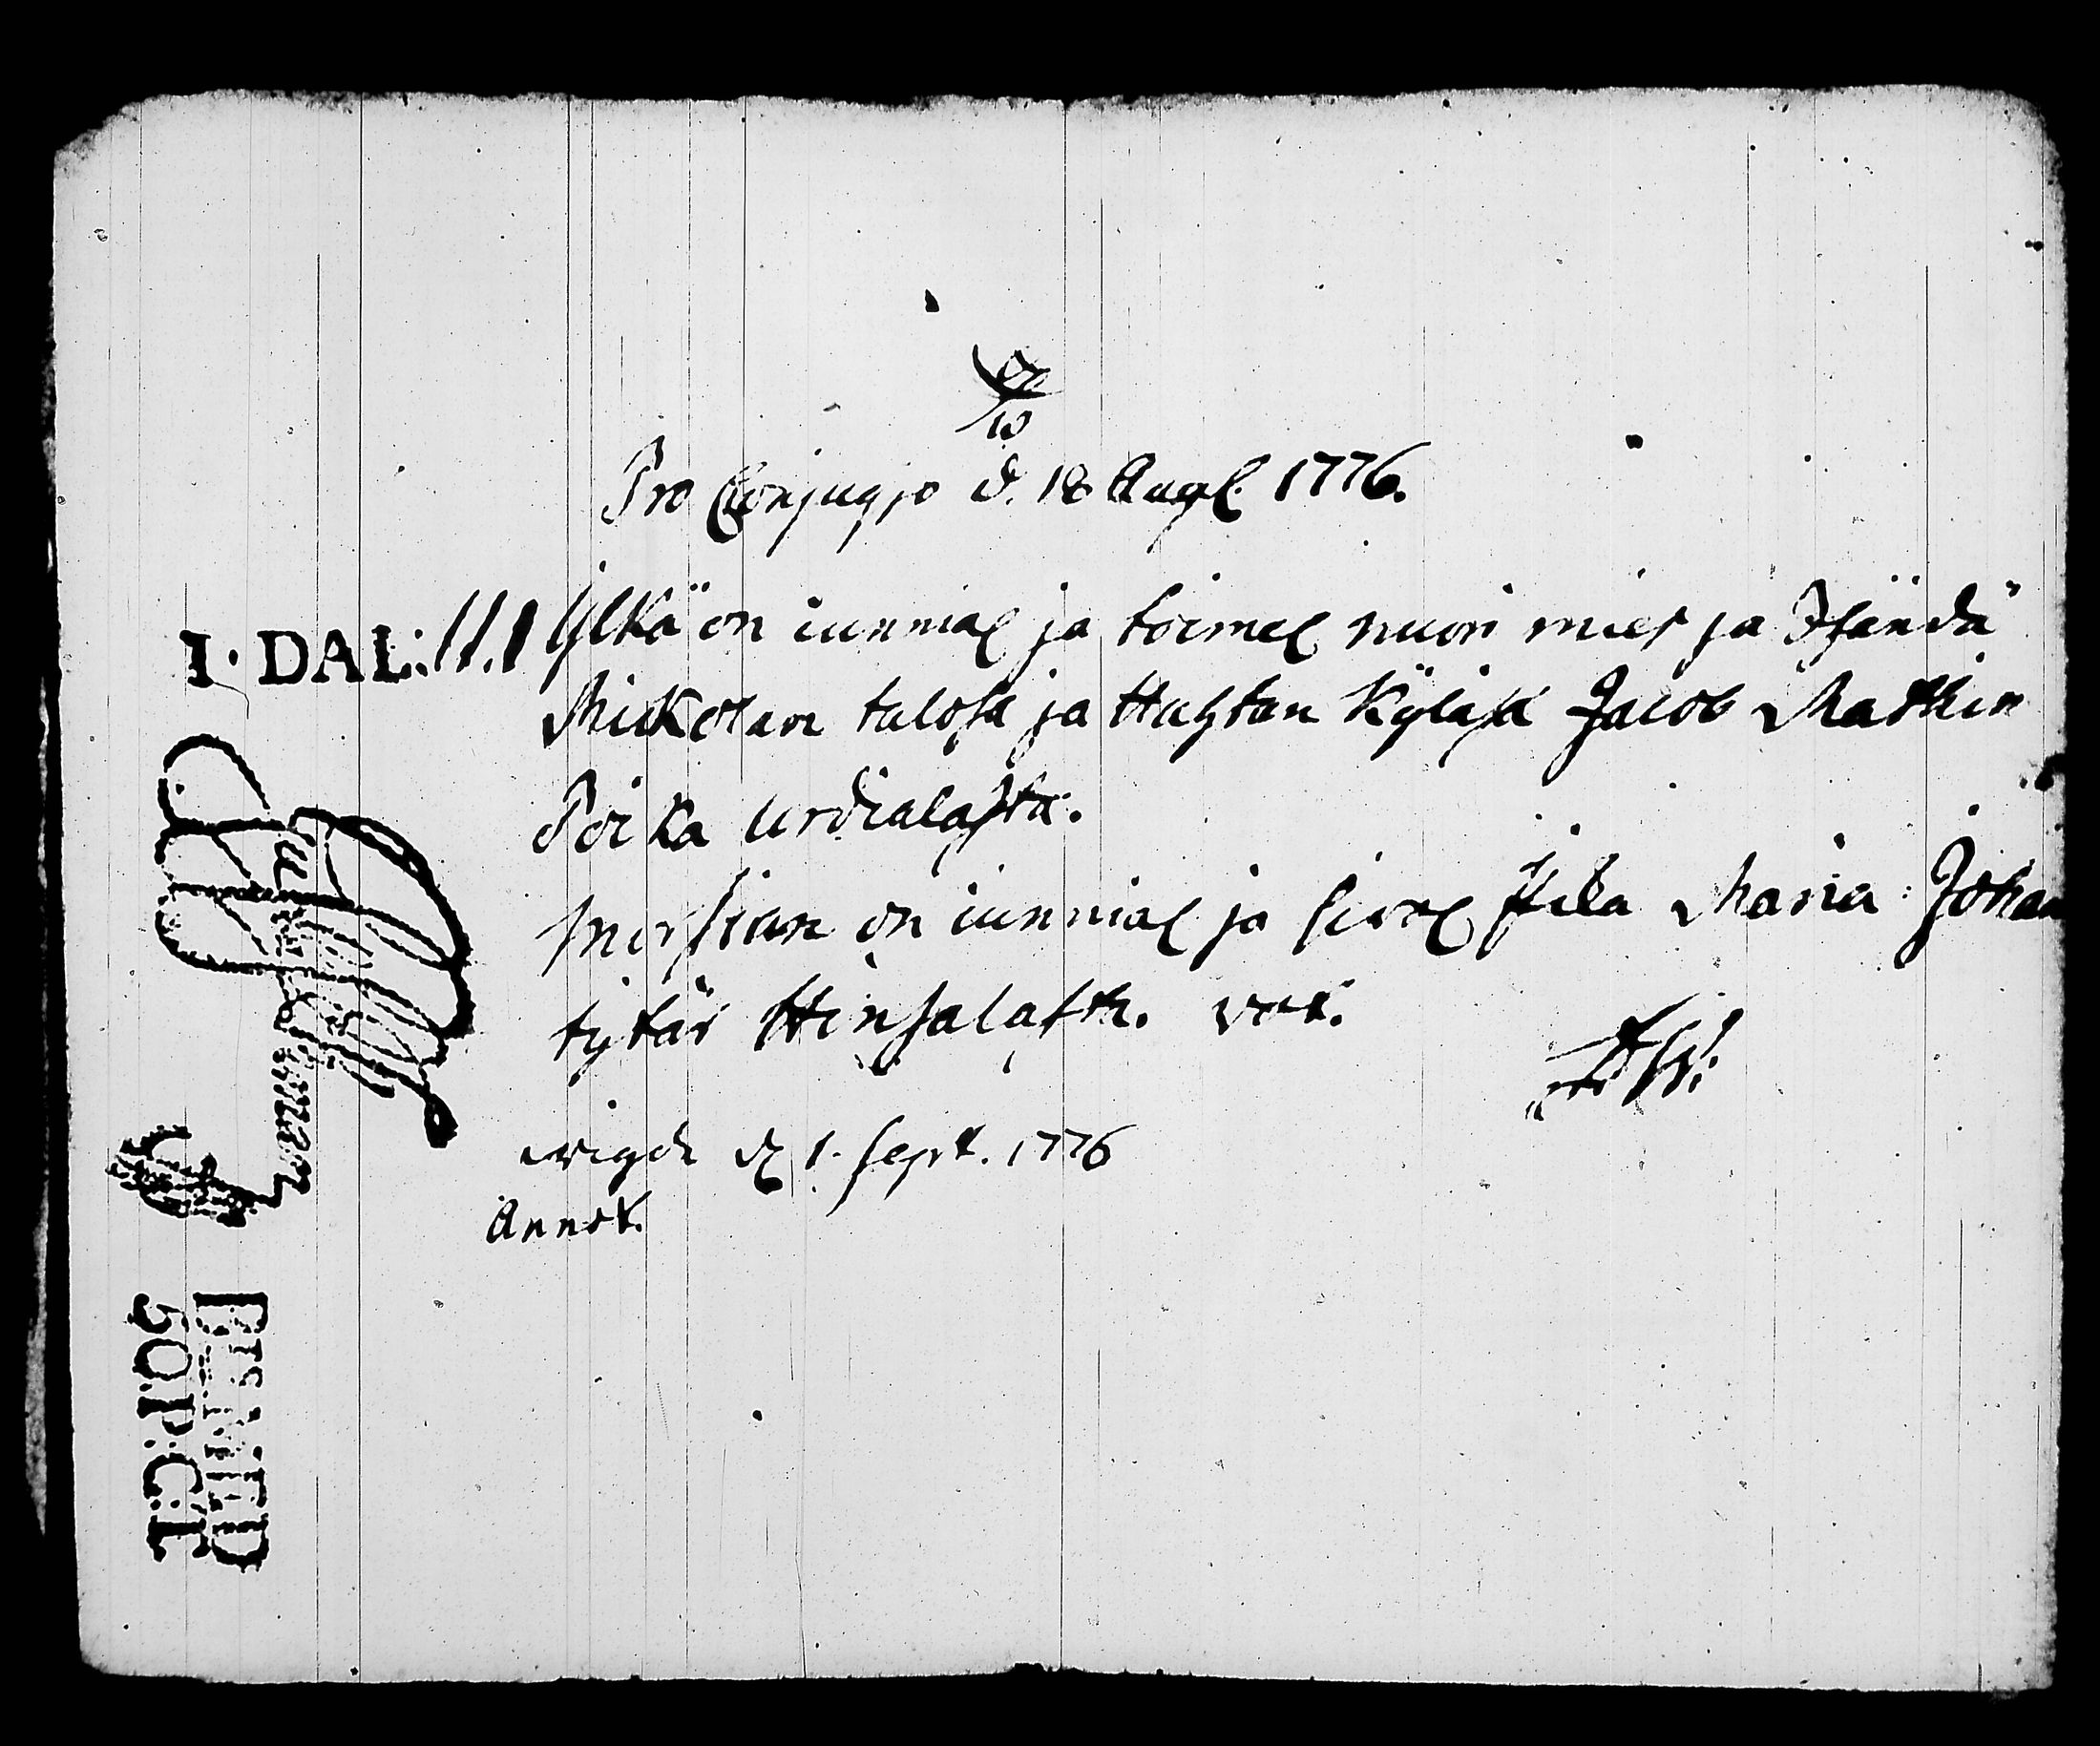 10
Pro Conjugio d. 18 Aug. 1776.
I. DAL: 11.1
Ylkä on cunnial ja toimel nuori mies ja Isändä
Mickolan talosa ja Huhtan Kyläsä Jacob Mathin
Poika Urdialasta.
Morsian on cunnial ja siwel Pika Maria Johan
tytär Hinsalasta. vot.
wigde d 1. Sept. 1776
Annot.